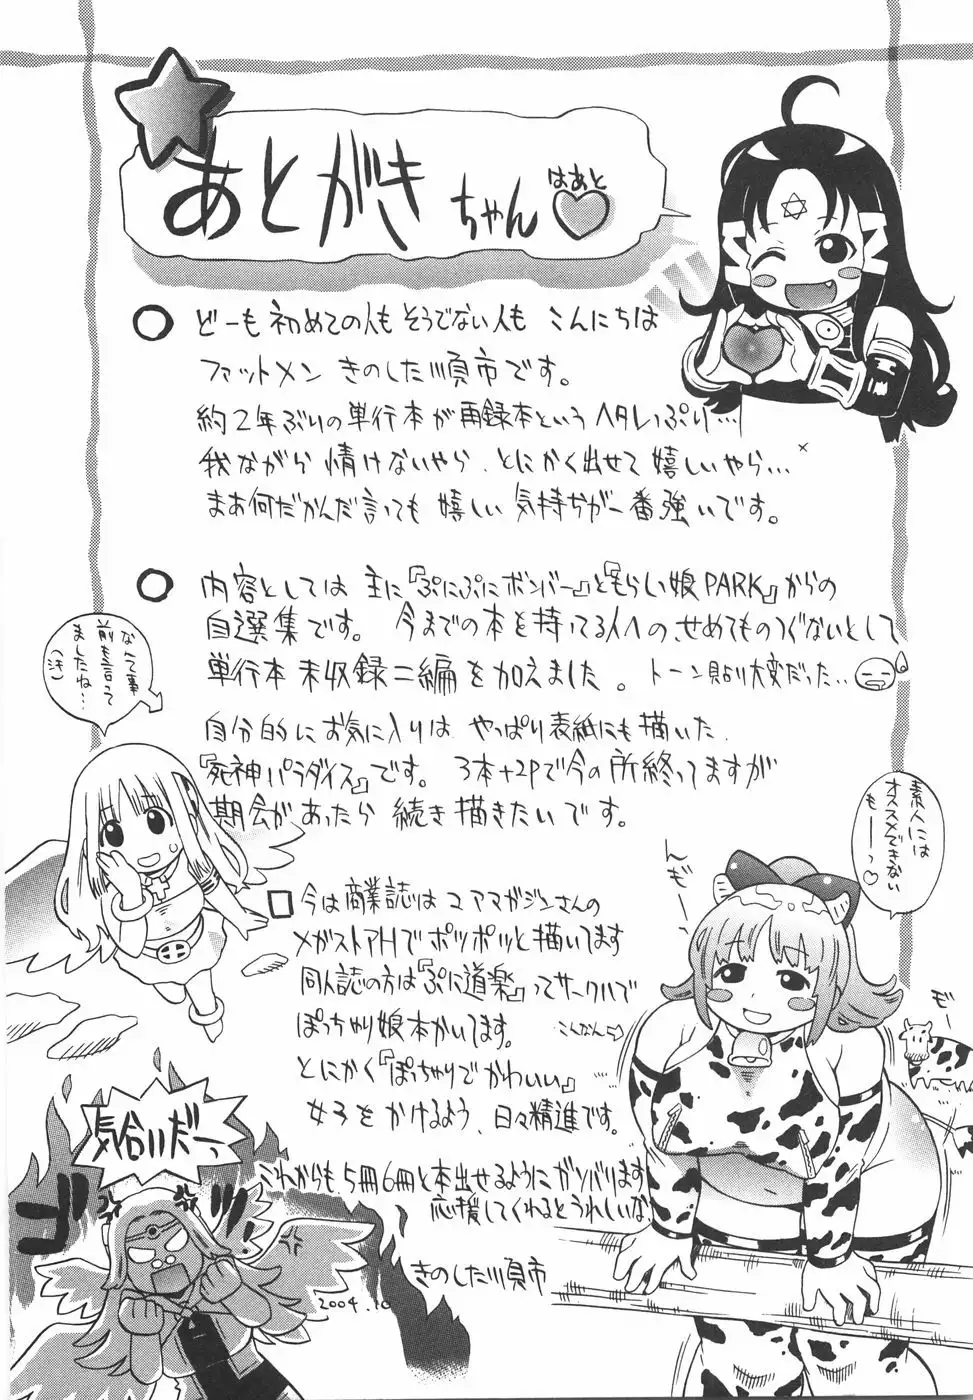 あとがきちゃん
はあと
どーも 初めての人も そうでない人も こんにちは
ファットメン きのした順市です。
約2年ぶりの単行本が再録本というヘタレっぷり…
我ながら 情けないやら、とにかく出せて 嬉しいやら…
まあ何だかんだ言っても 嬉しい 気持ちが一番強いです。
内容としては 主に『ぷにぷにボンバー』と『もらい娘PARK』からの
自選集です。 今までの本を持ってる人へのせめてものつぐないとして
単行本 未収録二編を加えました。 トーン貼り大変だった..
自分的にお気に入りは やっぱり表紙にも描いた
『死神パラダイス』です。 3本+2Pで今の所終ってますが
期会があったら 続き描きたいです。
なんて事
前も言って
ましたね…
(汗)
素人には
オススメできない
もーーっ♡
んぎー!
んもー
モ゛ー
今は商業誌はコアマガジンさんの
メガストアHでポツポツと描いてます
同人誌の方は『ぷに道楽』ってサークルで
ぽっちゃり娘本かいてます。 こんなん⇨
とにかく『ぽっちゃりでかわいい』
女子をかけるよう、日々精進です。
これからも5冊6冊と本出せるようにガンバります
応援してくれるとうれしいな
きのした順市
気合いだーっ
2004.10